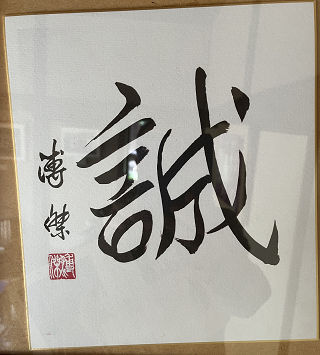 誠
溥傑